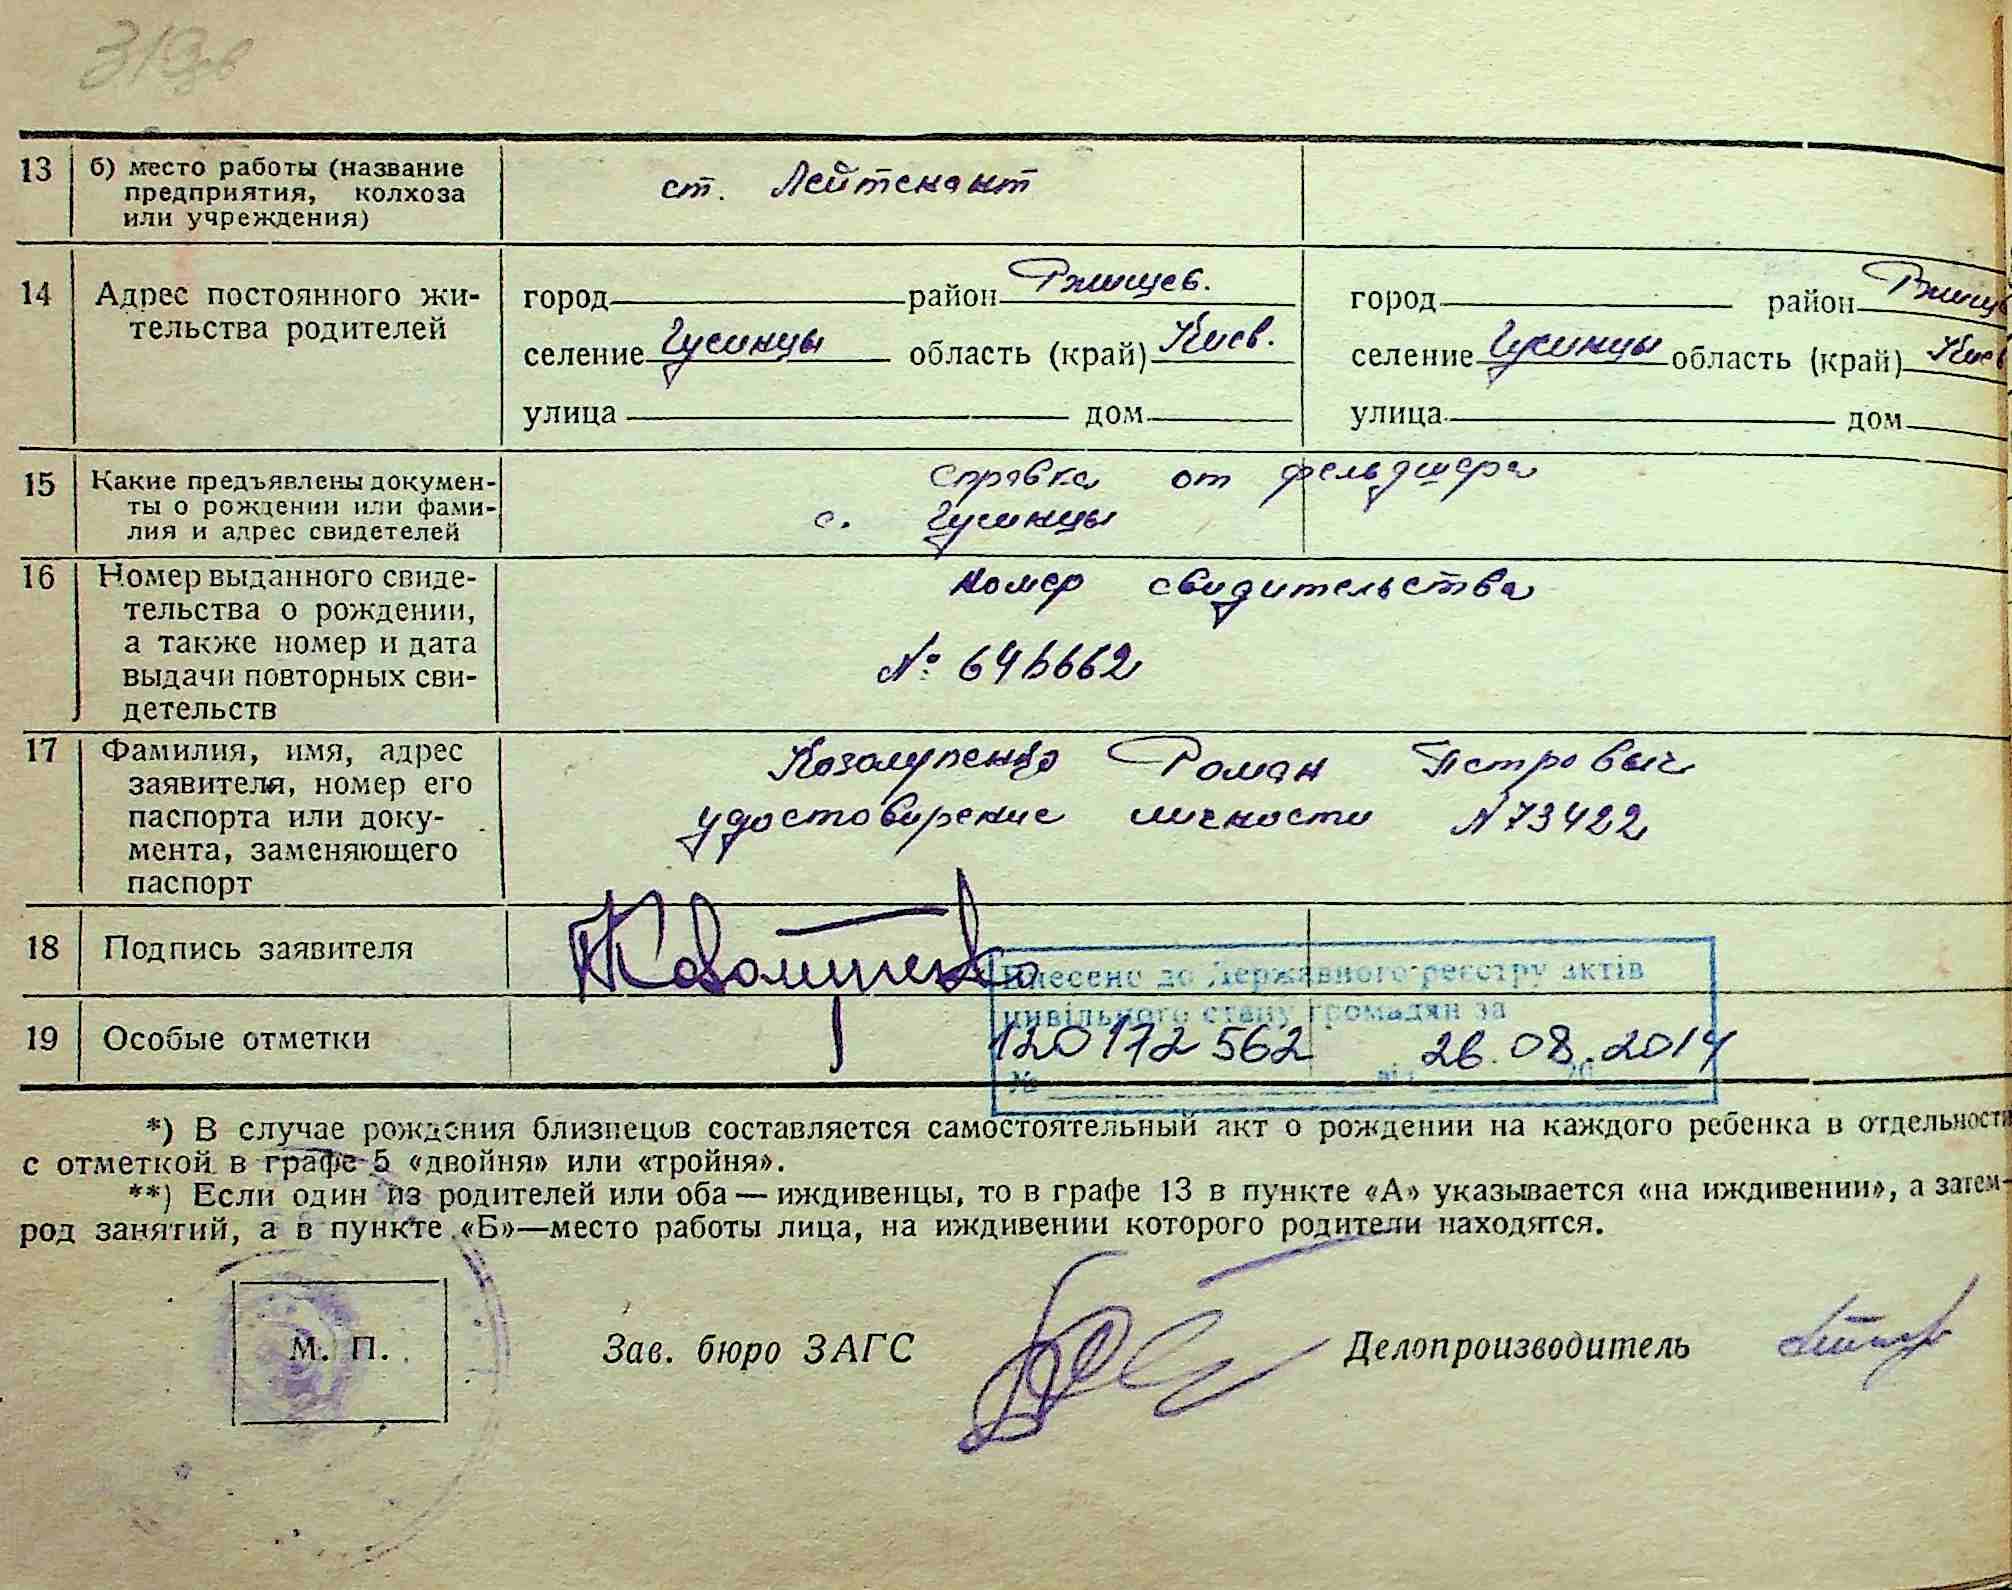 13 б) место работы (название
предприятия, колхоза
или учреждения)
ст. Лейтенант
14 Адрес постоянного жи-
тельства родителей
город район Ржищев.
селение Гусинцы область (край) Киев.
улица дом
город район Ржищ
селение Гусинцы область (край) Киев
улица дом
15 Какие предъявлены докумен-
ты о рождении или фами-
лия и адрес свидетелей
справка от фельдшера
с. Гусинцы
16 Номер выданного свиде-
тельства о рождении,
а также номер и дата
выдачи повторных сви-
детельств
номер свидительства
17 Фамилия, имя, адрес
заявителя, номер его
паспорта или доку-
мента, заменяющего
паспорт
Роман Петровыч
удостовирение личности N 73422
18 Подпись заявителя
19 Особые отметки
Внесено до Державного реєстру актів
цивільного стану громадян за
№ 120172562 від 26.08.2014
*) В случае рождения близнецов составляется самостоятельный акт о рождении на каждого ребенка в отдельности
с отметкой в графе 5 «двойня» или «тройня».
**) Если один из родителей или оба — иждивенцы, то в графе 13 в пункте «А» указывается «на иждивении», а затем
род занятий, а в пункте «Б»—место работы лица, на иждивении которого родители находятся.
М. П. Зав. бюро ЗАГС Делопроизводитель